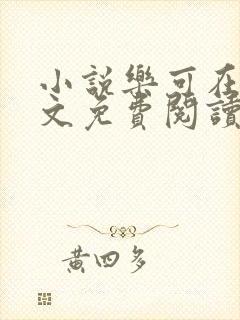 小說樂可在
文免費閱讀
黃四多